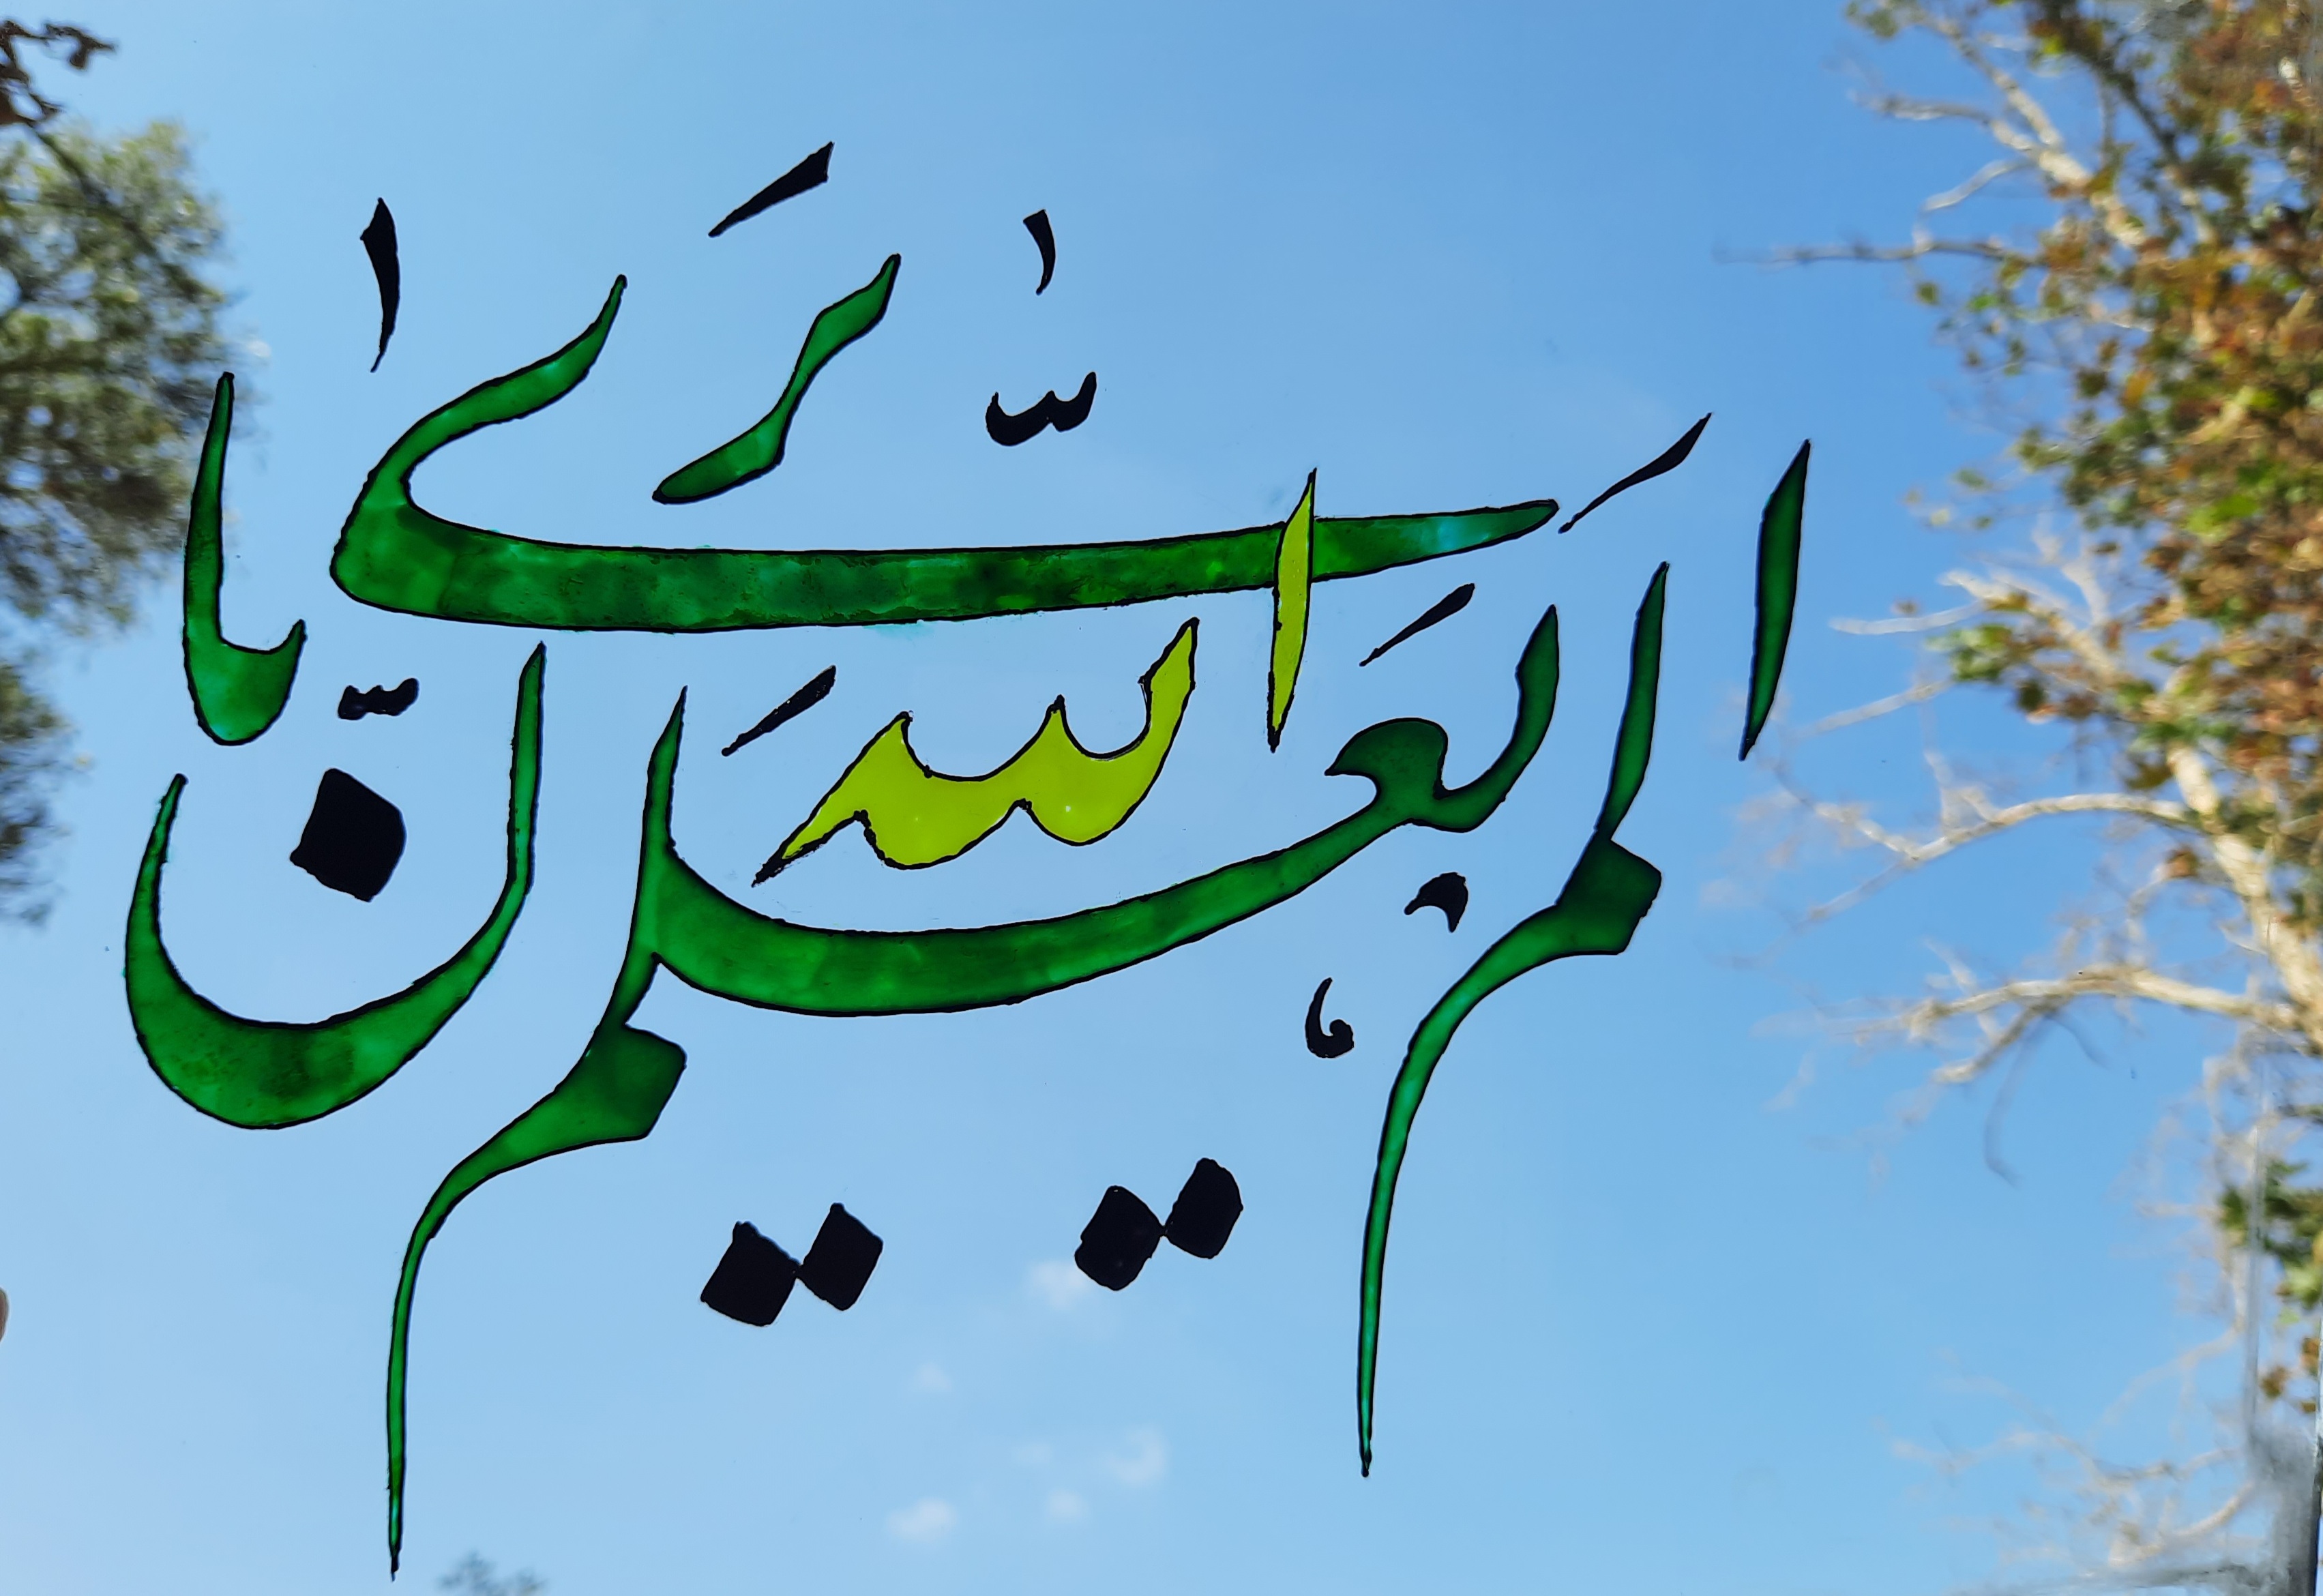 الم يعلم بانّ الله يرى